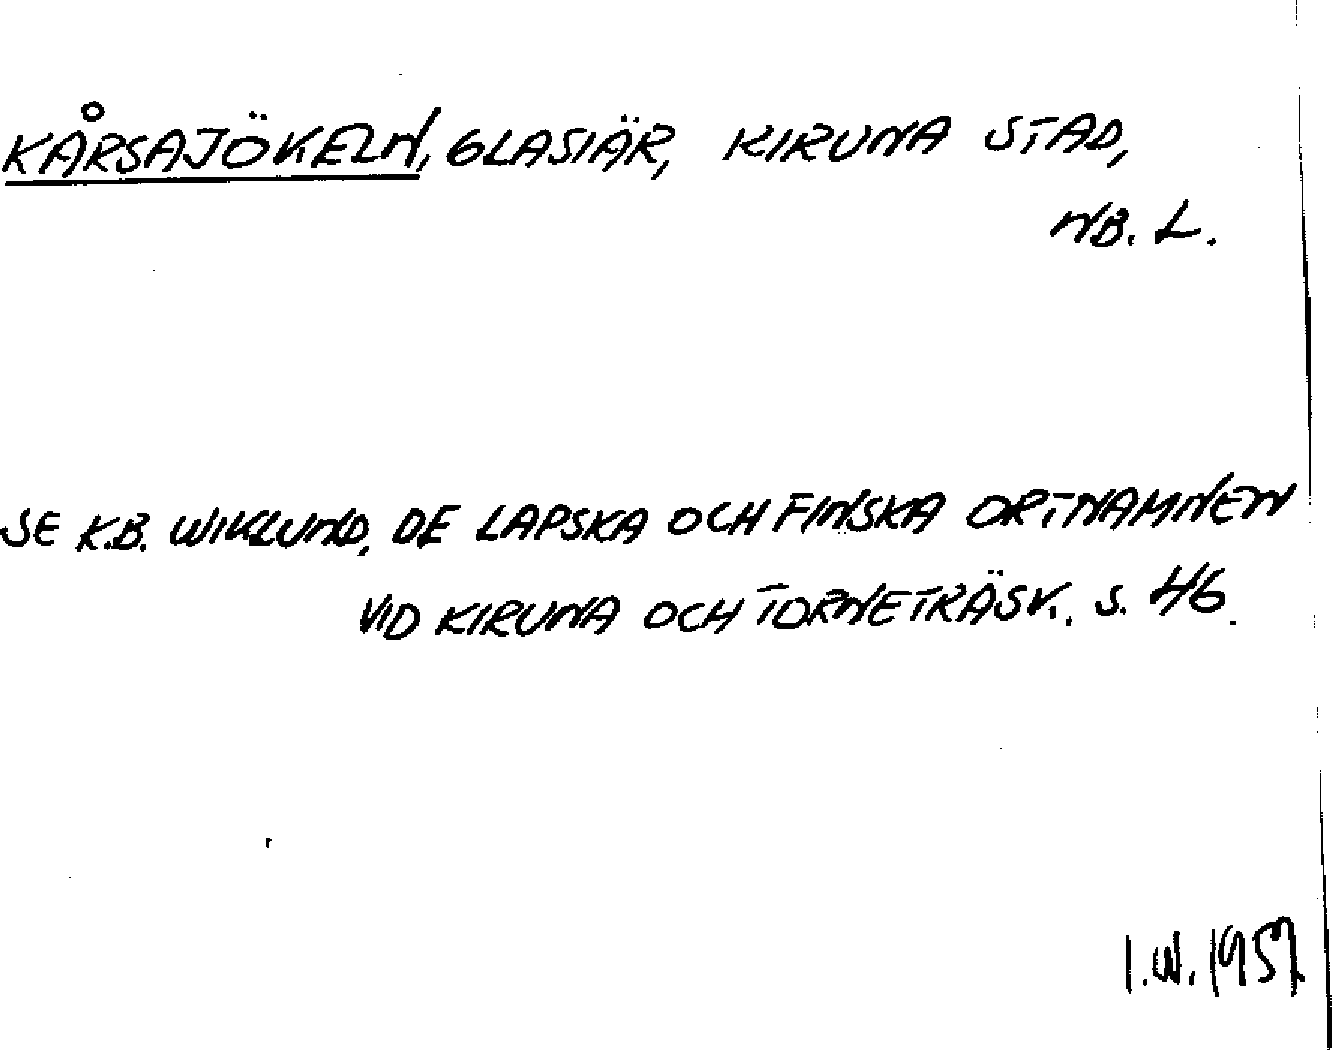 KÅRSAJÖKELN, GLASIÄR, KIRUNA STAD,
NB. L.
SE K.B. WIKLUND, DE LAPSKA OCH FINSKA ORTNAMNEN
VID KIRUNA OCH TORNETRÄSK. S. 46.
I.W. 1957